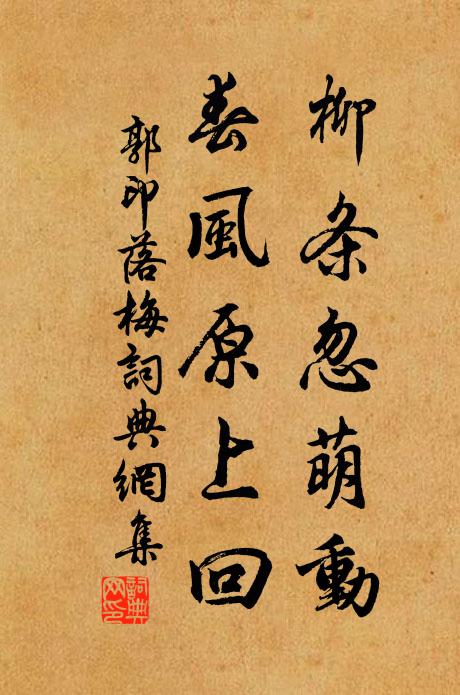 柳条忽萌動
春風原上回
郭印落梅詞典網集
詞典
网印